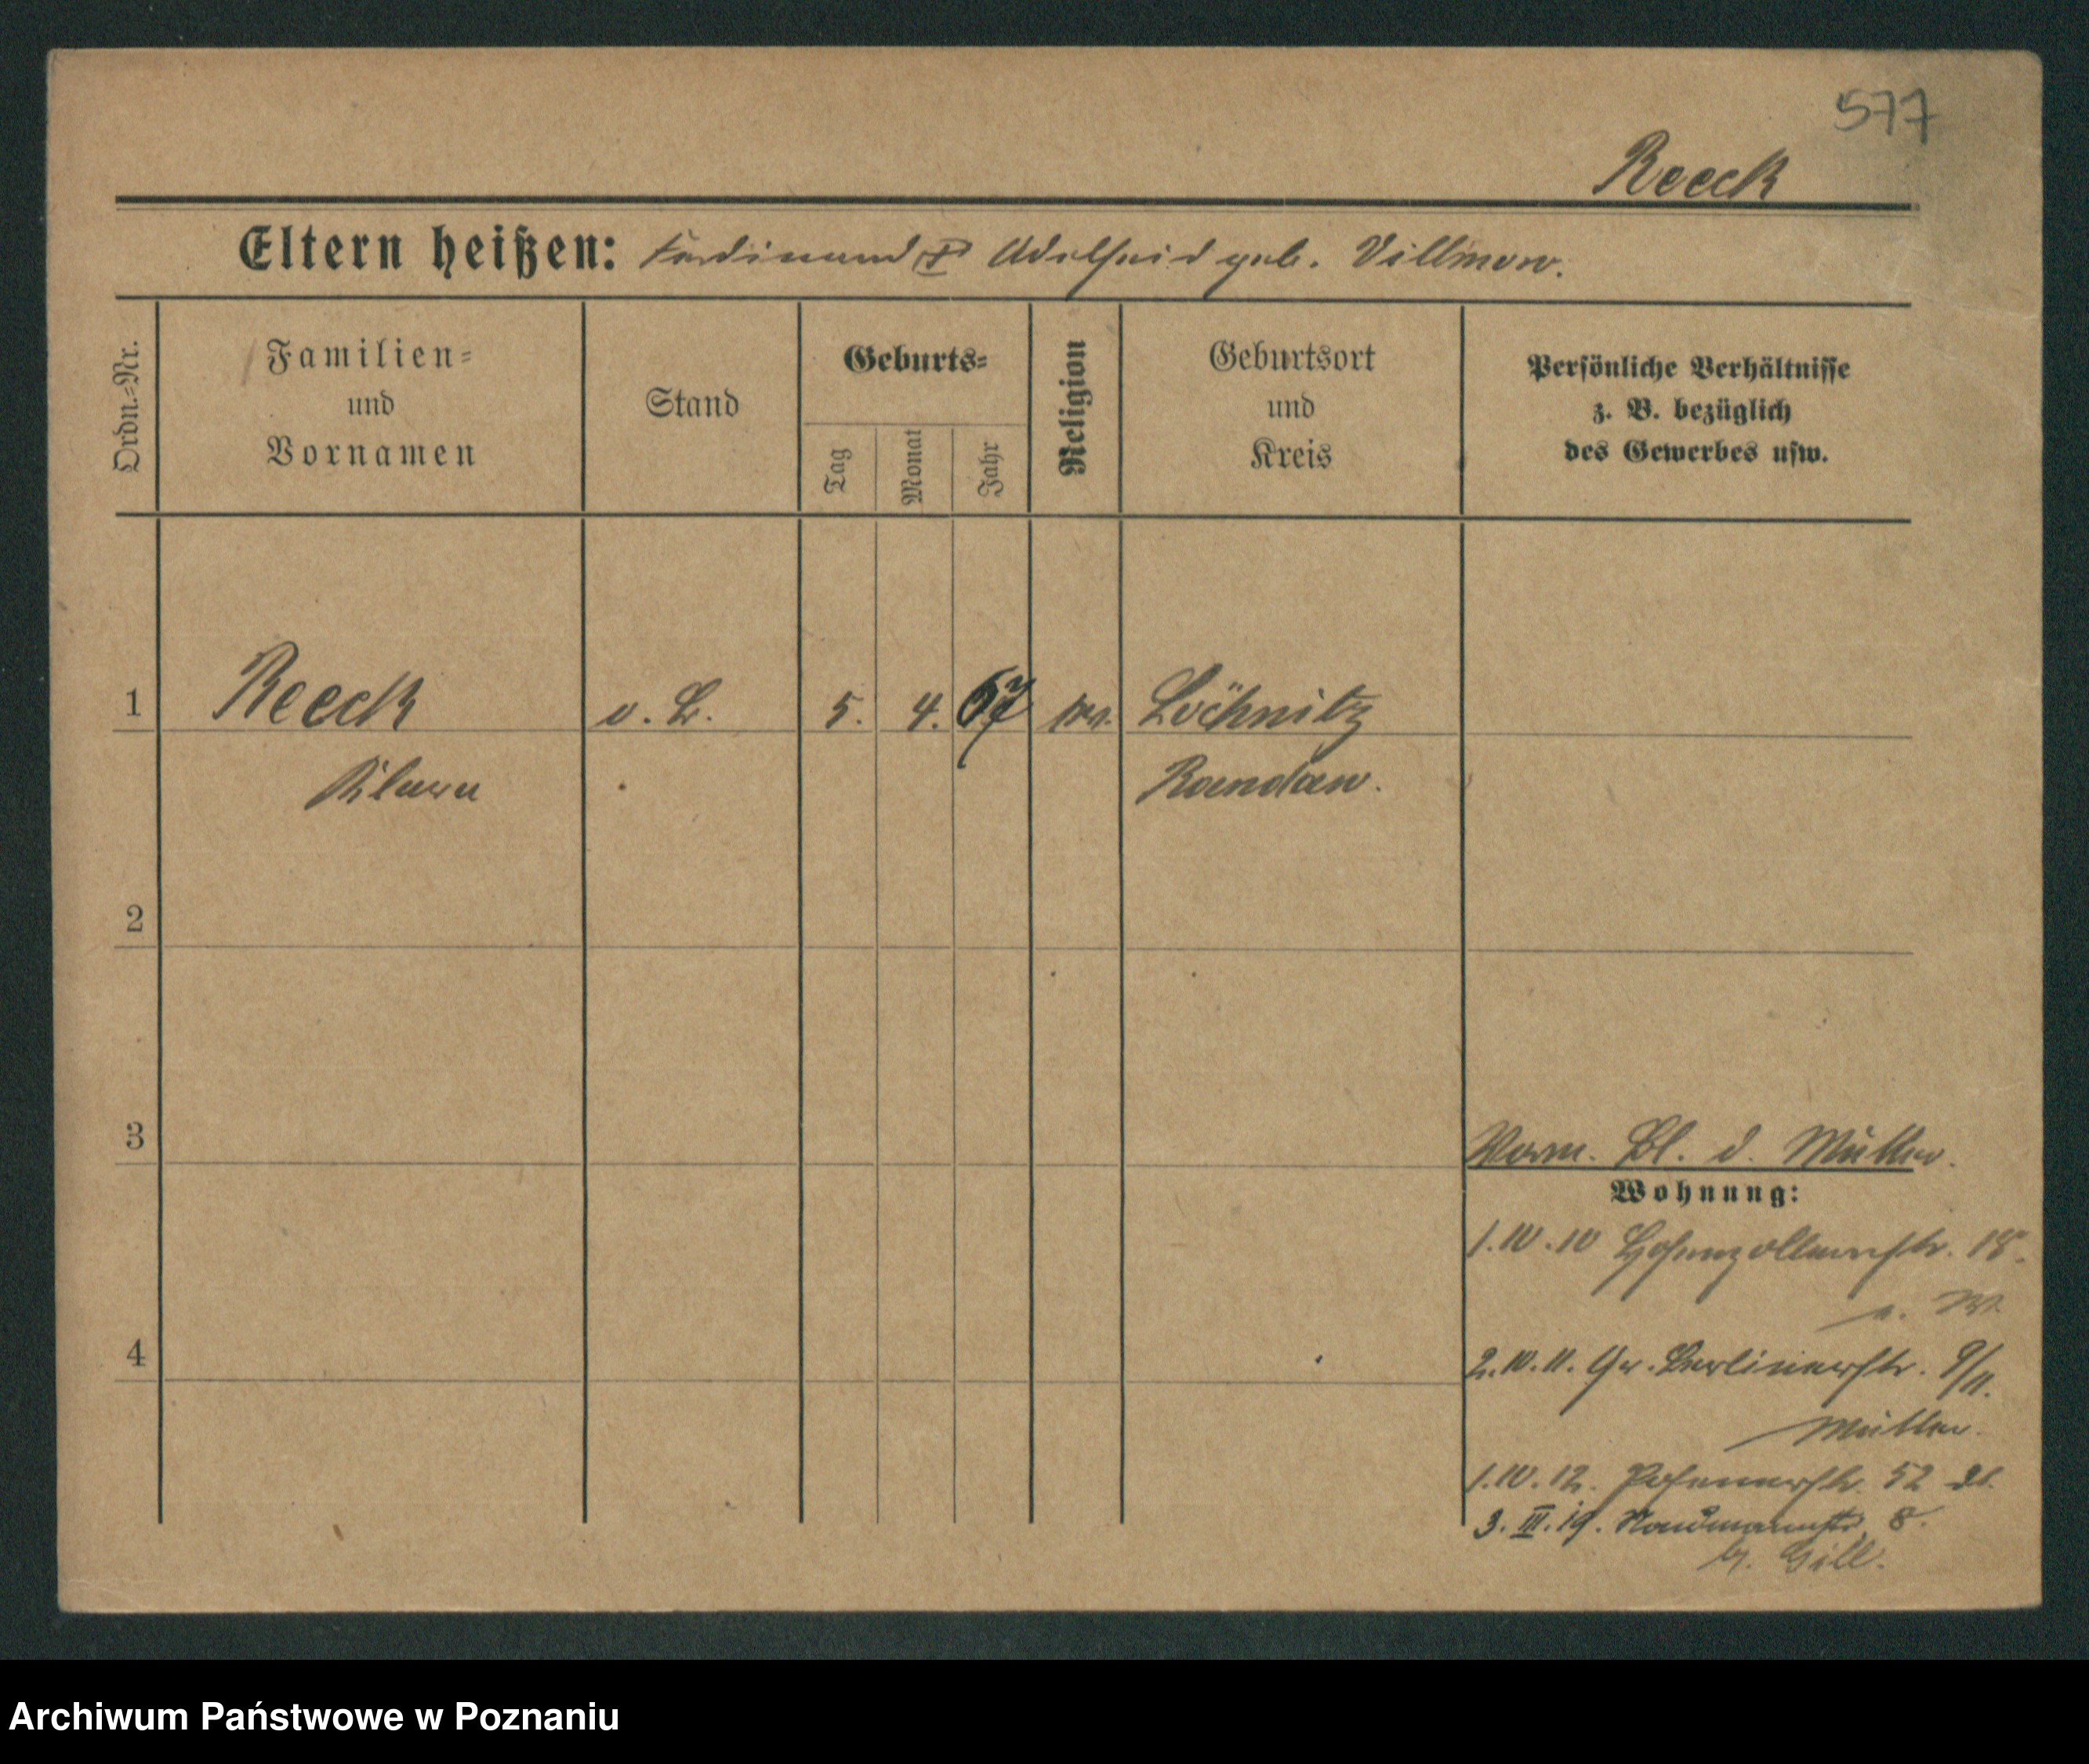 577
Reeck
Eltern heißen: Ferdinand Adelheid geb. Villmow.
Ordn.-Nr.
Familien-
und
Vornamen
Stand
Geburts-
Tag
Monat
Jahr
Religion
Geburtsort
und
Kreis
Persönliche Verhältnisse
z. B. bezüglich
des Gewerbes usw.
1 Reeck o. B. 5. 4. 67 ev. Löcknitz
Klara Randow.
2
3
Vorm. Bl. d. Mutter.
Wohnung:
1.10.10 Hohenzollernstr. 18.
4
2.10.11. Gr. Berlinerstr. 9/11.
Mutter.
1.10.12. Posenerstr. 52
3. III. 19. Naumannstr. 8.
b. Gill.
Archiwum Państwowe w Poznaniu